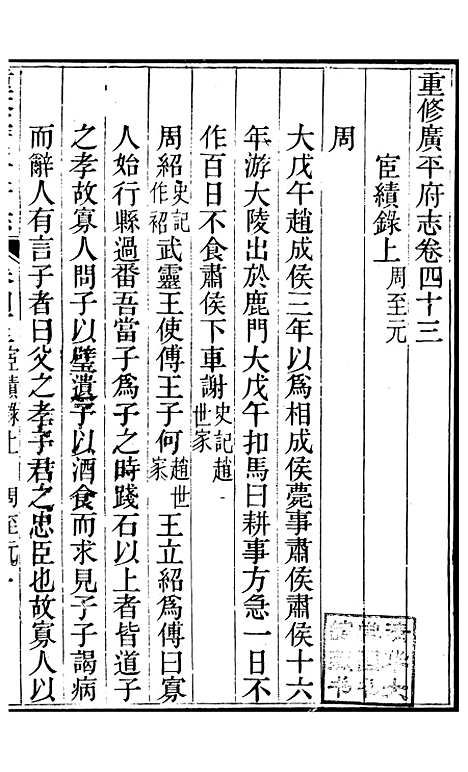 重修廣平府志卷四十三
宦績錄上 周至元
周
大戊午趙成侯三年以爲相成侯薨事肅侯肅侯十六
年游大陵出於鹿門大戊午扣馬曰耕事方急一日不
作百日不食肅侯下車謝 史記趙世家
周紹 史記作袑 武靈王使傅王子何 趙世家 王立紹爲傅曰寡
人始行縣過番吾當子爲子之時踐石以上者皆道子
之孝故寡人問子以璧遺子以酒食而求見子子謁病
而辭人有言子者曰父之孝子君之忠臣也故寡人以
宦績錄上 周至元